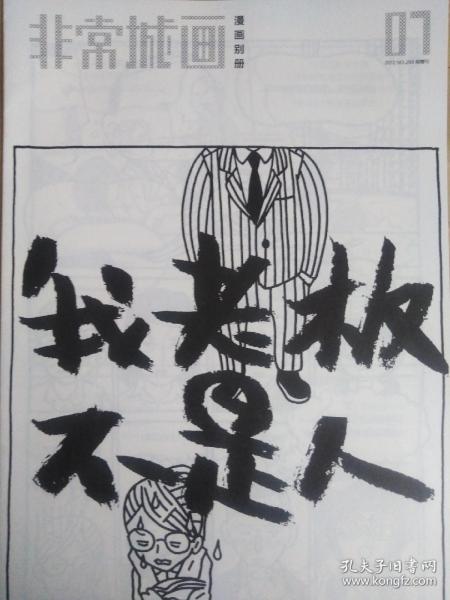 非常城画
漫画别册
07
我老板
不是人
孔夫子旧书网
www.kongfz.com